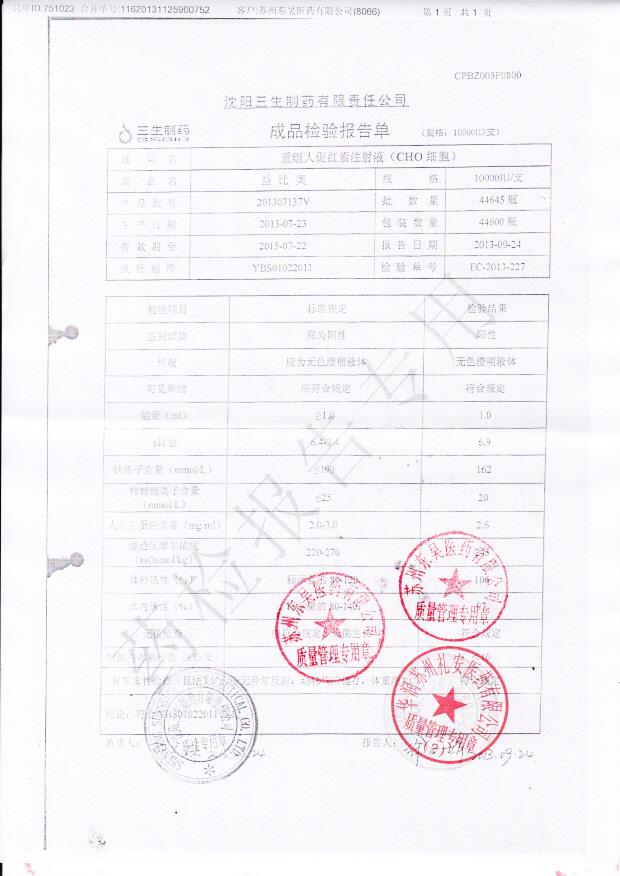 总单ID:751023 合并单号:11620131125900752 客户:苏州东吴医药有限公司(8066) 第 1 页 共 1 页
CPBZ003F0800
沈阳三生制药有限责任公司
三生制药
3SBIO
成品检验报告单 (规格: 10000IU/支)
重组人促红素注射液（CHO 细胞）
商 品 名 益比奥 规 格 10000IU/支
产品批号 201307137V 批 数 量 44645 瓶
生产日期 2013-07-23 包装数量 44600 瓶
有效期至 2015-07-22 报告日期 2013-09-24
执行标准 YBS01022011 检验单号 EC-2013-227
检验项目 标准规定 检验结果
鉴别试验 应为阳性 阳性
外观 应为无色澄明液体 无色澄明液体
可见异物 应符合规定 符合规定
装量（ml） ≥1.0 1.0
pH 值 6.4-7.4 6.9
氯离子含量（mmol/L） ≤190 162
枸橼酸离子含量（mmol/L） ≤25 20
人血白蛋白含量（mg/ml） 2.0-3.0 2.6
渗透压摩尔浓度（mOsmol/kg） 220-270
体外活性（%） 106
体内活性（%） 80-140 97
无菌检查 符合规定
YBS01022011
负责人： 报告人： 2013.09.24
药检报告专用
苏州东吴医药有限公司
质量管理专用章
苏州东吴医药有限公司
质量管理专用章
华润苏州礼安医药有限公司
质量管理专用章
(2)